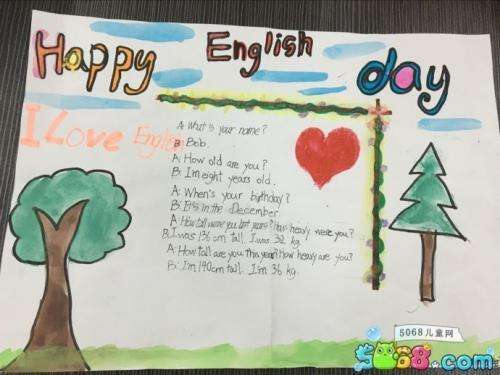 Happy English day
I Love English
A: What is your name?
B: Bob.
A: How old are you?
B: I'm eight years old.
A: When's your birthday?
B: It's in the December
A: How tall were you last years? How heavy were you?
B: I was 136 cm tall. I was 32 kg.
A: How tall are you this year? How heavy are you?
B: I'm 140cm tall. I'm 36 kg.
5068儿童网
5068.com